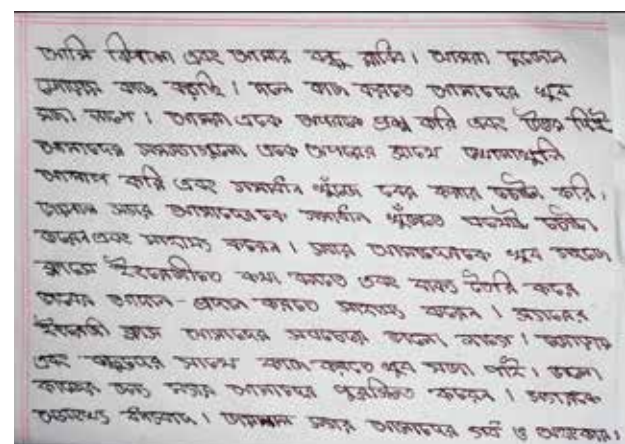 আমি বিপাশা এবং আমার বন্ধু রাফি। আমরা দুজনে
কাজ করছি। দলে কাজ করতে আমাদের খুব
মজা লাগে। আমরা একে অপরকে প্রশ্ন করি এবং উত্তর দিই
আমাদের সমস্যাগুলো একে অপরের সাথে খোলাখুলি
আলাপ করি এবং সমাধান খুঁজে বের করার চেষ্টা করি।
স্যার আমাদেরকে সমাধান খুঁজতে যথেষ্ট চেষ্টা
করেন এবং সাহায্য করেন। স্যার আমাদেরকে খুব
ক্লাসে ইংরেজীতে কথা বলতে এবং বাক্য তৈরি করে
আদান-প্রদান করতে সাহায্য করেন। স্যারের
ইংরেজী ক্লাস আমাদের সবচেয়ে ভালো লাগে।
এবং সাথে কাজ করতে খুব মজা পাই। ভালো
কাজের জন্য স্যার আমাদের পুরস্কিত করেন। স্যারকে
অসংখ্য ধন্যবাদ। স্যার আমাদের গর্ব ও অহংকার।